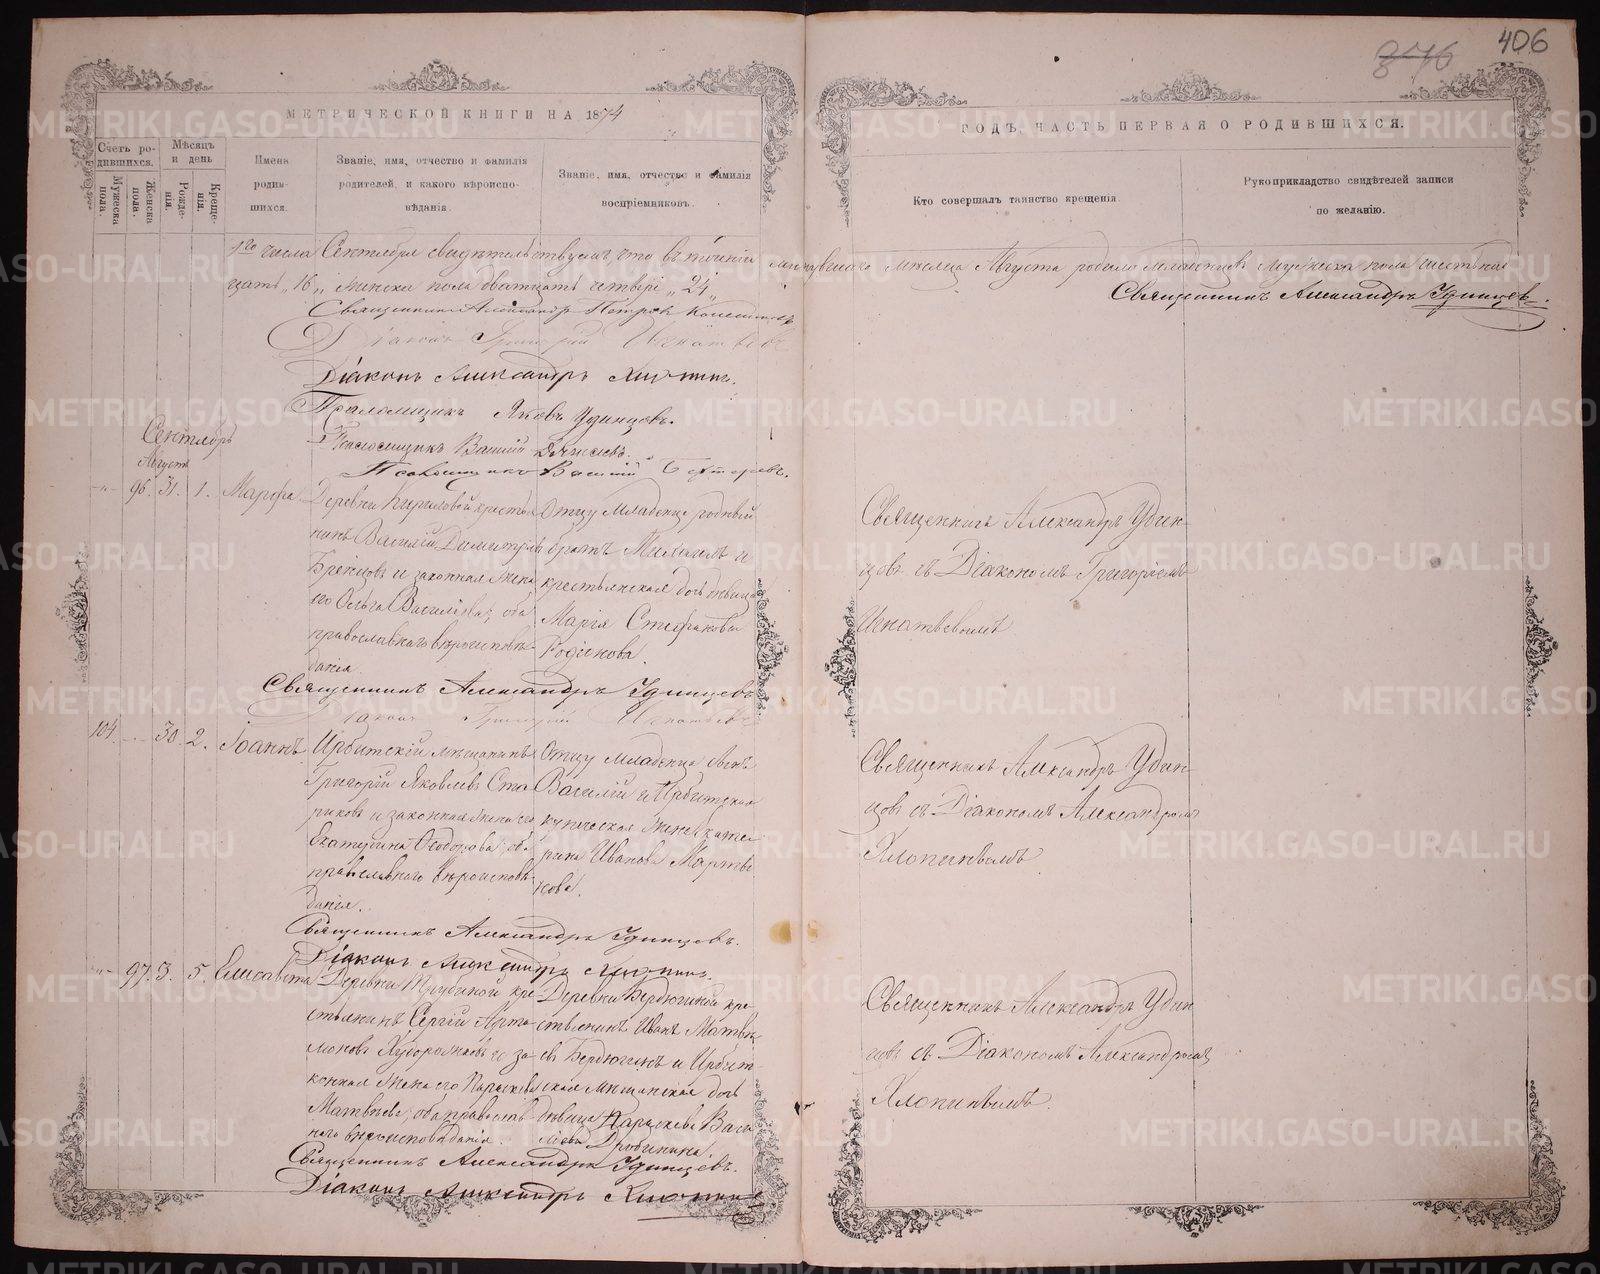 406
МЕТРИЧЕСКОЙ КНИГИ НА 1874
ГОДЪ, ЧАСТЬ ПЕРВАЯ О РОДИВШИХСЯ.
Счетъ родившихся.
Мужеска пола.
Женска пола.
Мѣсяцъ и день
Рожденія.
Крещенія.
Имена родившихся.
Званіе, имя, отчество и фамилія
родителей, и какого вѣроиспо-
вѣданія.
Званіе, имя, отчество и фамилія
воспріемниковъ.
Кто совершалъ таинство крещенія.
Рукоприкладство свидѣтелей записи
по желанію.
1го числа Сентября свидѣтельствуемъ что въ теченіи минувшаго мѣсяца Августа родилось младенцевъ мужеска пола шестнад
цать „16„ женска пола двадцать четыре „24„
Священникъ Александръ Удинцевъ.
Священникъ Александръ Петровъ
Діаконъ Григорій Игнатьевъ
Діаконъ Александръ Хлопинъ.
Псаломщикъ Яковъ Удинцовъ.
Псаломщикъ Василій
Псаломщикъ Василій
Сентябрь
Августъ
96. 31. 1. Марѳа
Деревни Кириловой крестья
нинъ Василій Димитріевъ
Бренцовъ и законная жена
его Ольга Васильева; оба
православнаго вѣроисповѣ-
данія
Отцу младенца родный
братъ Михаилъ и
крестьянская дочь дѣвица
Марія Стефанова
Родіонова.
Священникъ Александръ Удин-
цовъ съ Діакономъ Григоріемъ
Игнатьевымъ
Священникъ Александръ Удинцевъ
Діаконъ Григорій Игнатьевъ
104. 30. 2. Іоаннъ
Ирбитскій мѣщанинъ
Григорій Яковлевъ Ста
риковъ и законная жена его
Екатерина Ѳеодорова; оба
православнаго вѣроисповѣ-
данія.
Отцу младенца
Василій и Ирбитская
купеческая жена Екате-
рина Иванова Мартьи
нова.
Священникъ Александръ Удин-
цовъ съ Діакономъ Александромъ
Хлопинымъ
Священникъ Александръ Удинцовъ.
Діаконъ Александръ Хлопинъ.
97. 3. 5. Елисавета
Деревни Трубиной кре
стьянинъ Сергій Арта
моновъ и за
конная жена его Параскева
Матвѣева; оба православ
наго вѣроисповѣданія.
Деревни Бердюгиной кре-
стьянинъ Иванъ Матвѣ
евъ Бердюгинъ и Ирбит-
ская мѣщанская дочь
дѣвица Параскева Васи
льева Дробинина.
Священникъ Александръ Удин
цовъ съ Діакономъ Александромъ
Хлопинымъ.
Священникъ Александръ Удинцевъ.
Діаконъ Александръ Хлопинъ
METRIKI.GASO-URAL.RU